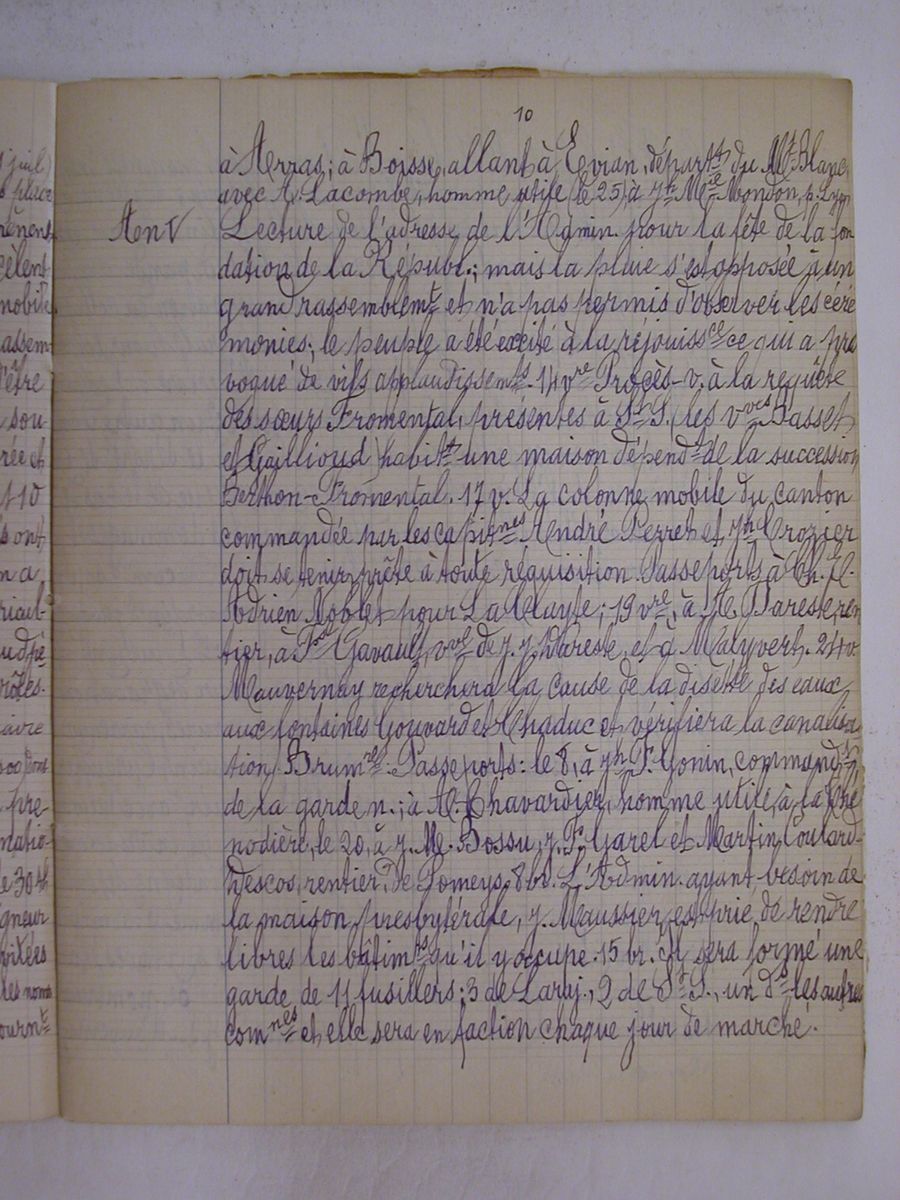 10
à Arras; à Boisse, allant à Evian, départ^t du M^t-Blanc,
avec A. Lacombe, homme utile (le 25) à J^h M^ie Mondon, p. Lyon
An V
Lecture de l'adresse de l'Admin. pour la fête de la fon
dation de la Républ.; mais la pluie s'est opposée à un
grand rassemblem^t et n'a pas permis d'observer les céré
monies; le peuple a été excité à la réjouiss^ce ce qui a pro
voqué de vifs applaudissem^ts. 14 v^re Procès-v. à la requête
des sœurs Fromental, présentes à S^t S. les v^ves Basset
et Gaillioud habit^t une maison dépend^t de la succession
Berthon-Fromental. 17 v. La colonne mobile du canton
commandée par les capit^nes André Perret et J^h Crozier
doit se tenir prête à toute réquisition. Passeports à Ch. El.
Adrien Noblet pour La Clayte; 19 v^re, à A. Dareste, ren
tier, à F^se Gavault, v^ve de J. J. Dareste, et à Malyvert. 24 v.
Mauvernay recherchera la cause de la disette des eaux
aux fontaines Gouvard et Chaduc et vérifiera la canalisa
tion. Brum^re. Passeports: le 8, à J^h F. Gonin, command^t
de la garde n.; à A. Chavardier, homme utile, à la Thé
nodière, le 20, à J. M. Bossu, J. F. Garel et Martin Coulard-
Descos, rentier, de Pomeys, 8 br. L'Admin. ayant besoin de
la maison presbytérale, J. Maussier est prié de rendre
libres les bâtim^ts qu'il y occupe. 15 br. Il sera formé une
garde de 11 fusillers: 3 de Laraj., 2 de S^t S., un d^s les autres
com^nes et elle sera en faction chaque jour de marché.